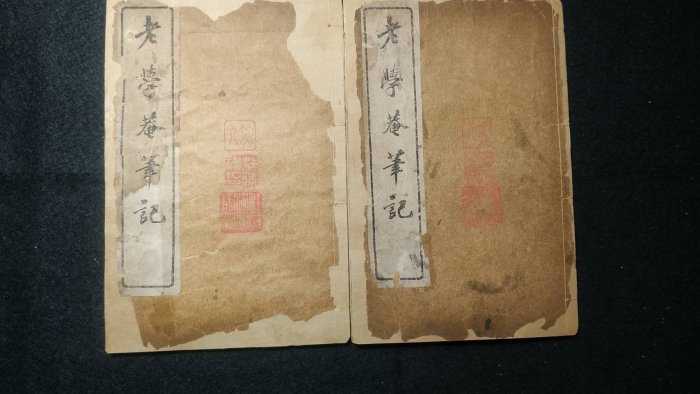 老學菴筆記
老學菴筆記